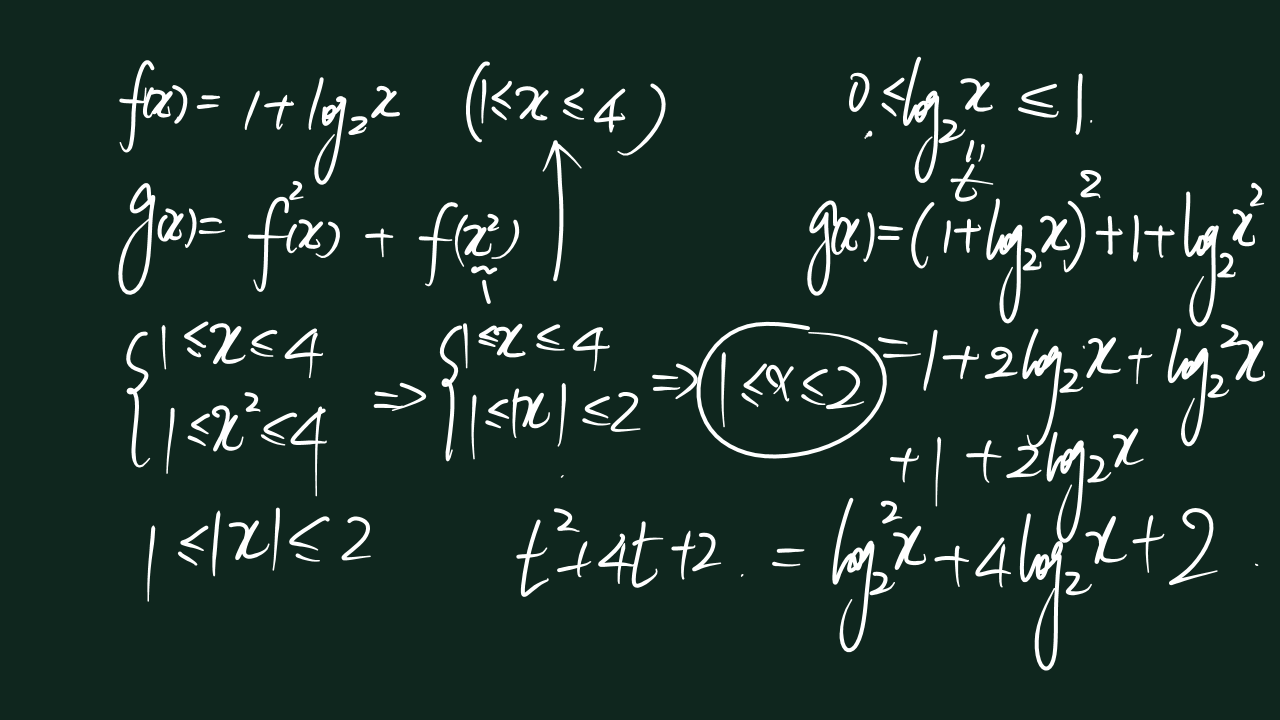 f(x) = 1 + log₂x (1 ≤ x ≤ 4)
g(x) = f²(x) + f(x²)
{ 1 ≤ x ≤ 4
1 ≤ x² ≤ 4
⇒ { 1 ≤ x ≤ 4
1 ≤ |x| ≤ 2
⇒ 1 ≤ x ≤ 2
1 ≤ |x| ≤ 2
0 ≤ log₂x ≤ 1
"
t
g(x) = (1 + log₂x)² + 1 + log₂x²
= 1 + 2log₂x + log₂²x
+ 1 + 2log₂x
t² + 4t + 2 = log₂²x + 4log₂x + 2